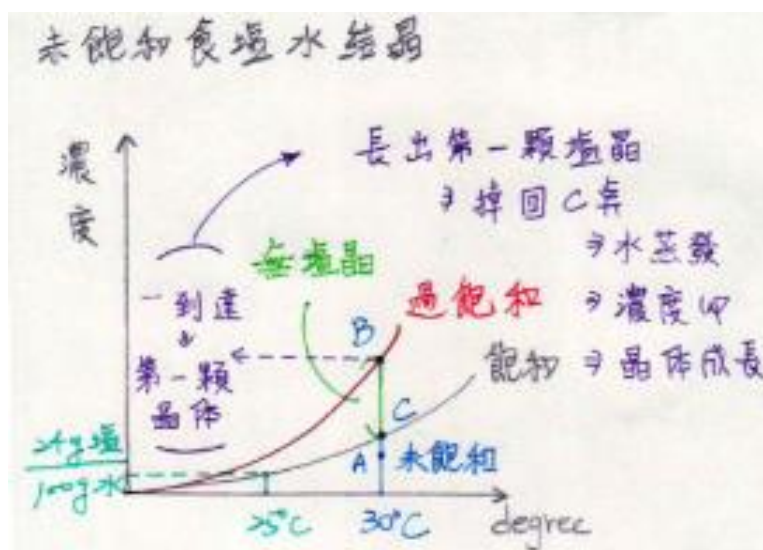 未飽和食塩水結晶
濃度
長出第一顆塩晶
→掉回C点
→水蒸發
→濃度up
→晶体成長
無塩晶
一到達
第一顆
晶体
過飽和
飽和
B
C
A
未飽和
24g塩
100g水
25°C
30°C
degree